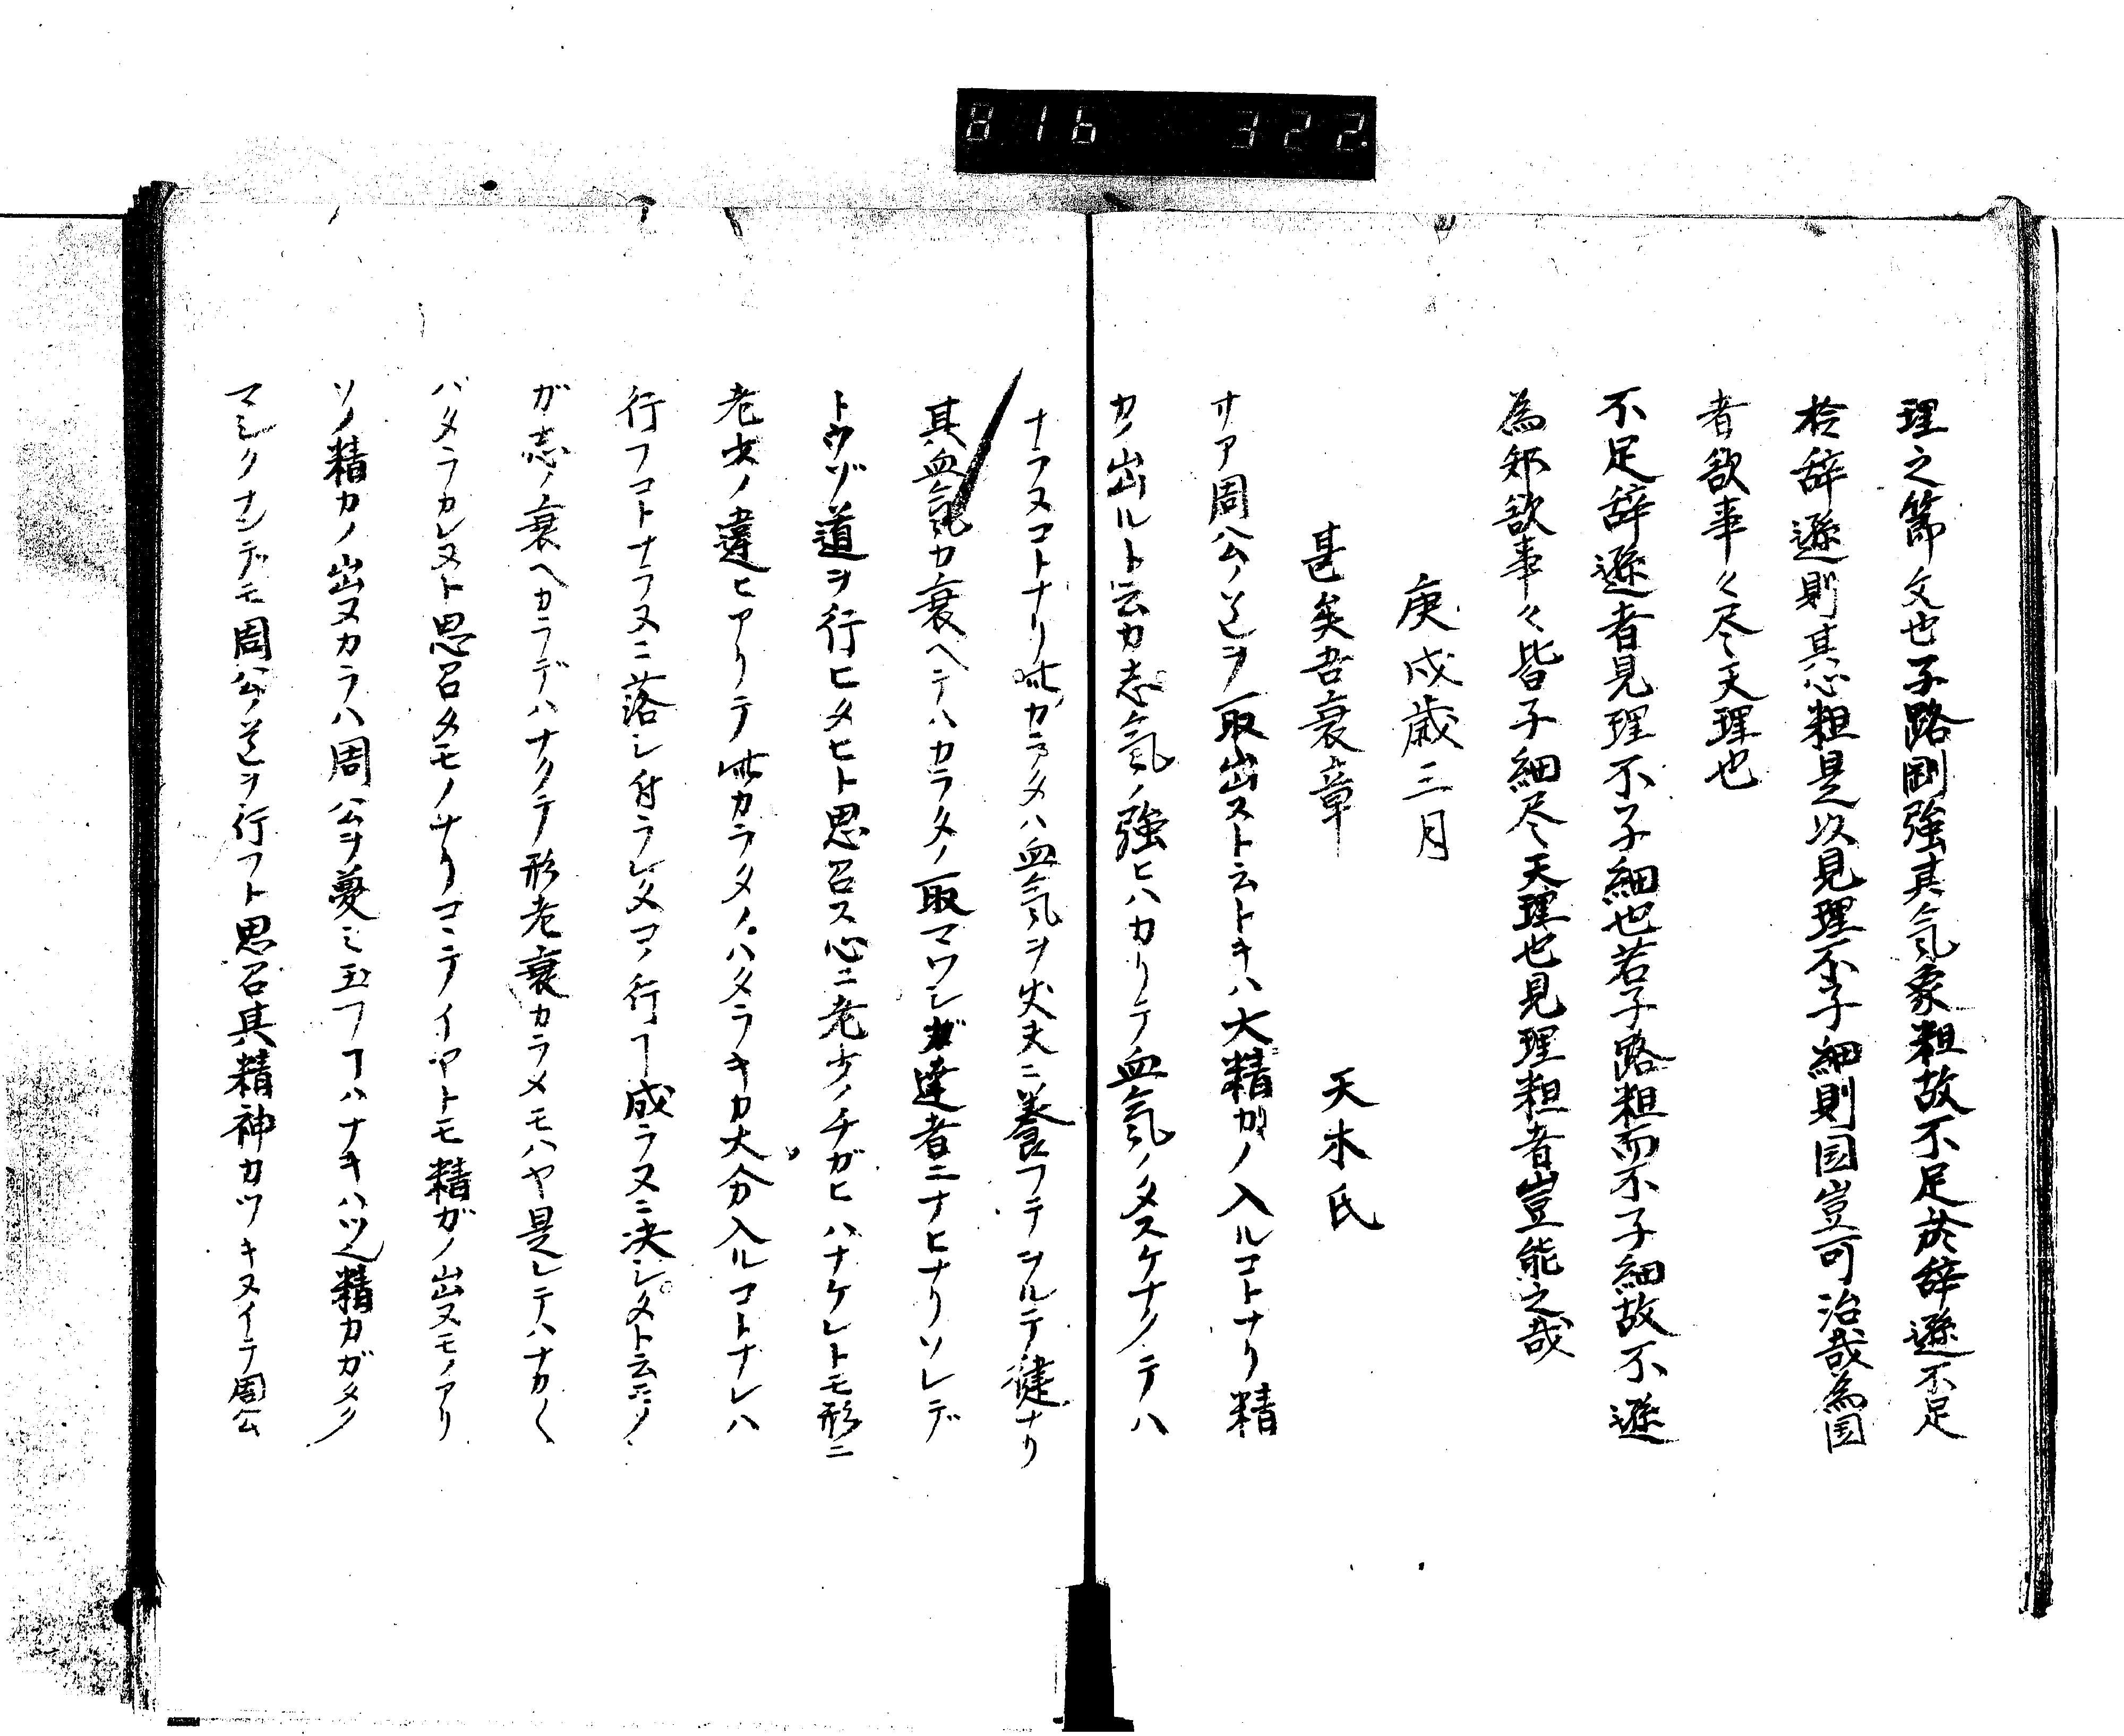 816 322.
理之節文也子路剛強其気象粗故不足於辞遜不足
於辞遜則其心粗是以見理不子細則国豈可治哉為国
者欲事々尽天理也
不足辞遜者見理不子細也若子路粗而不子細故不遜
為邦欲事々皆子細尽天理也見理粗者豈能之哉
庚戌歳三月
甚矣吾衰章 天木氏
サア周公ノ道ヲ取出スト云トキハ大精ガノ入ルコトナリ精
カノ出ルト云カ志気ノ強ヒハカリテ血気ノタスケナクテハ
ナラヌコトナリ此カラタハ血気ヲ丈夫ニ養フテヲルテ健ナリ
其血気カ衰ヘテハカラタノ取マワシガ達者ニナヒナリソレデ
トウゾ道ヲ行ヒタヒト思召ス心ニ老少ノチガヒハナケレトモ形ニ
老少ノ違ヒアリテ此カラタノハタラキカ大分入ルコトナレハ
行フコトナラヌニ落シ付ラレタコノ行フ成ラヌニ決シタト云ニノ
ガ志ノ衰ヘカラデハナクテ形老衰カラメモハヤ是レテハナカ〱
ハタラカレヌト思召タモノナリコヽテイヤトモ精ガノ出ヌモノアリ
ソノ精カノ出ヌカラハ周公ヲ夢ミ玉フヿハナキハツ也精カガタク
マシクナンデモ周公ノ道ヲ行フト思召其精神カツキヌイテ周公